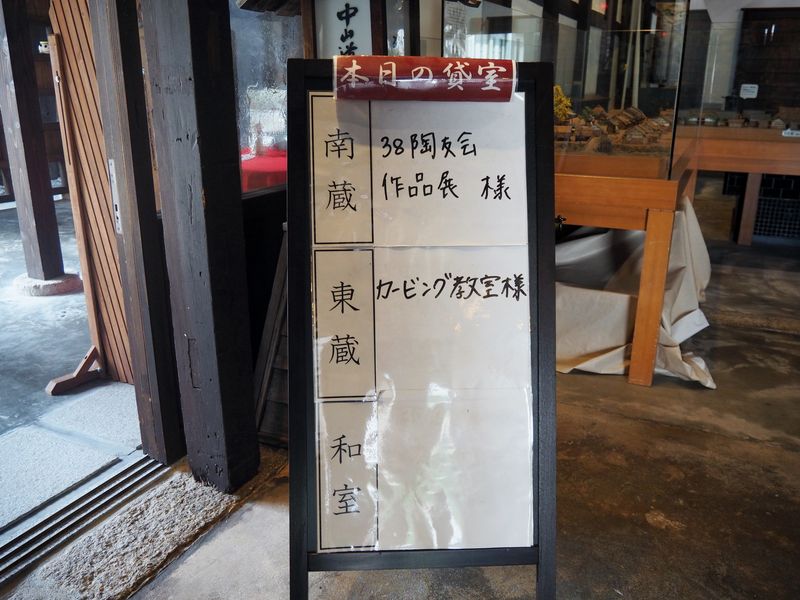 中山道
本日の貸室
南蔵
38陶友会
作品展 様
東蔵
カービング教室様
和室